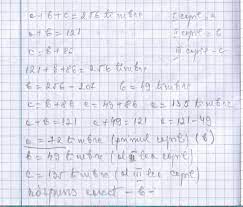 a+b+c=256 timbre I copil-a
a+b=121 II copil-b
c=b+86 III copil-c
121+b+86=256 timbre
b=256-207 b=49 timbre
c=b+86 c=49+86 c=135 timbre
a+b=121 a+49=121 a=121-49
a=72 timbre (primul copil) (b)
b=49 timbre (al II lea copil)
c=135 timbre (al III lea copil)
Răspuns corect -b-